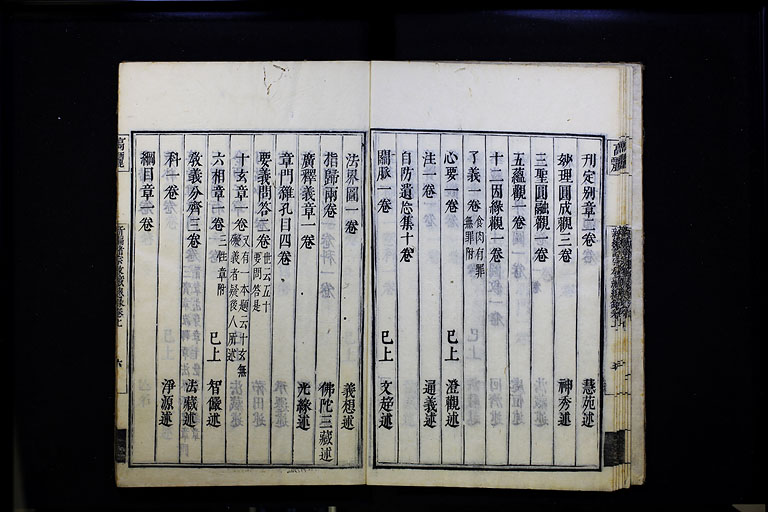 刊定別章二卷 慧苑述
妙理圓成觀三卷 神秀述
三聖圓融觀一卷
五蘊觀一卷
十二因緣觀一卷
了義一卷 食肉有罪無罪附
心要一卷 已上 澄觀述
注一卷 通義述
自防遺忘集十卷
關脉一卷 已上 文超述
法界圖一卷 義想述
指歸兩卷 佛陀三藏述
廣釋義章一卷 光緣述
章門雜孔目四卷
要義問答二卷 世云五十要問答是
十玄章一卷 又有一本題云十玄無礙義者疑後人所述
六相章一卷 三性章附 已上 智儼述
敎義分齊三卷 法藏述
科一卷 淨源述
綱目章一卷